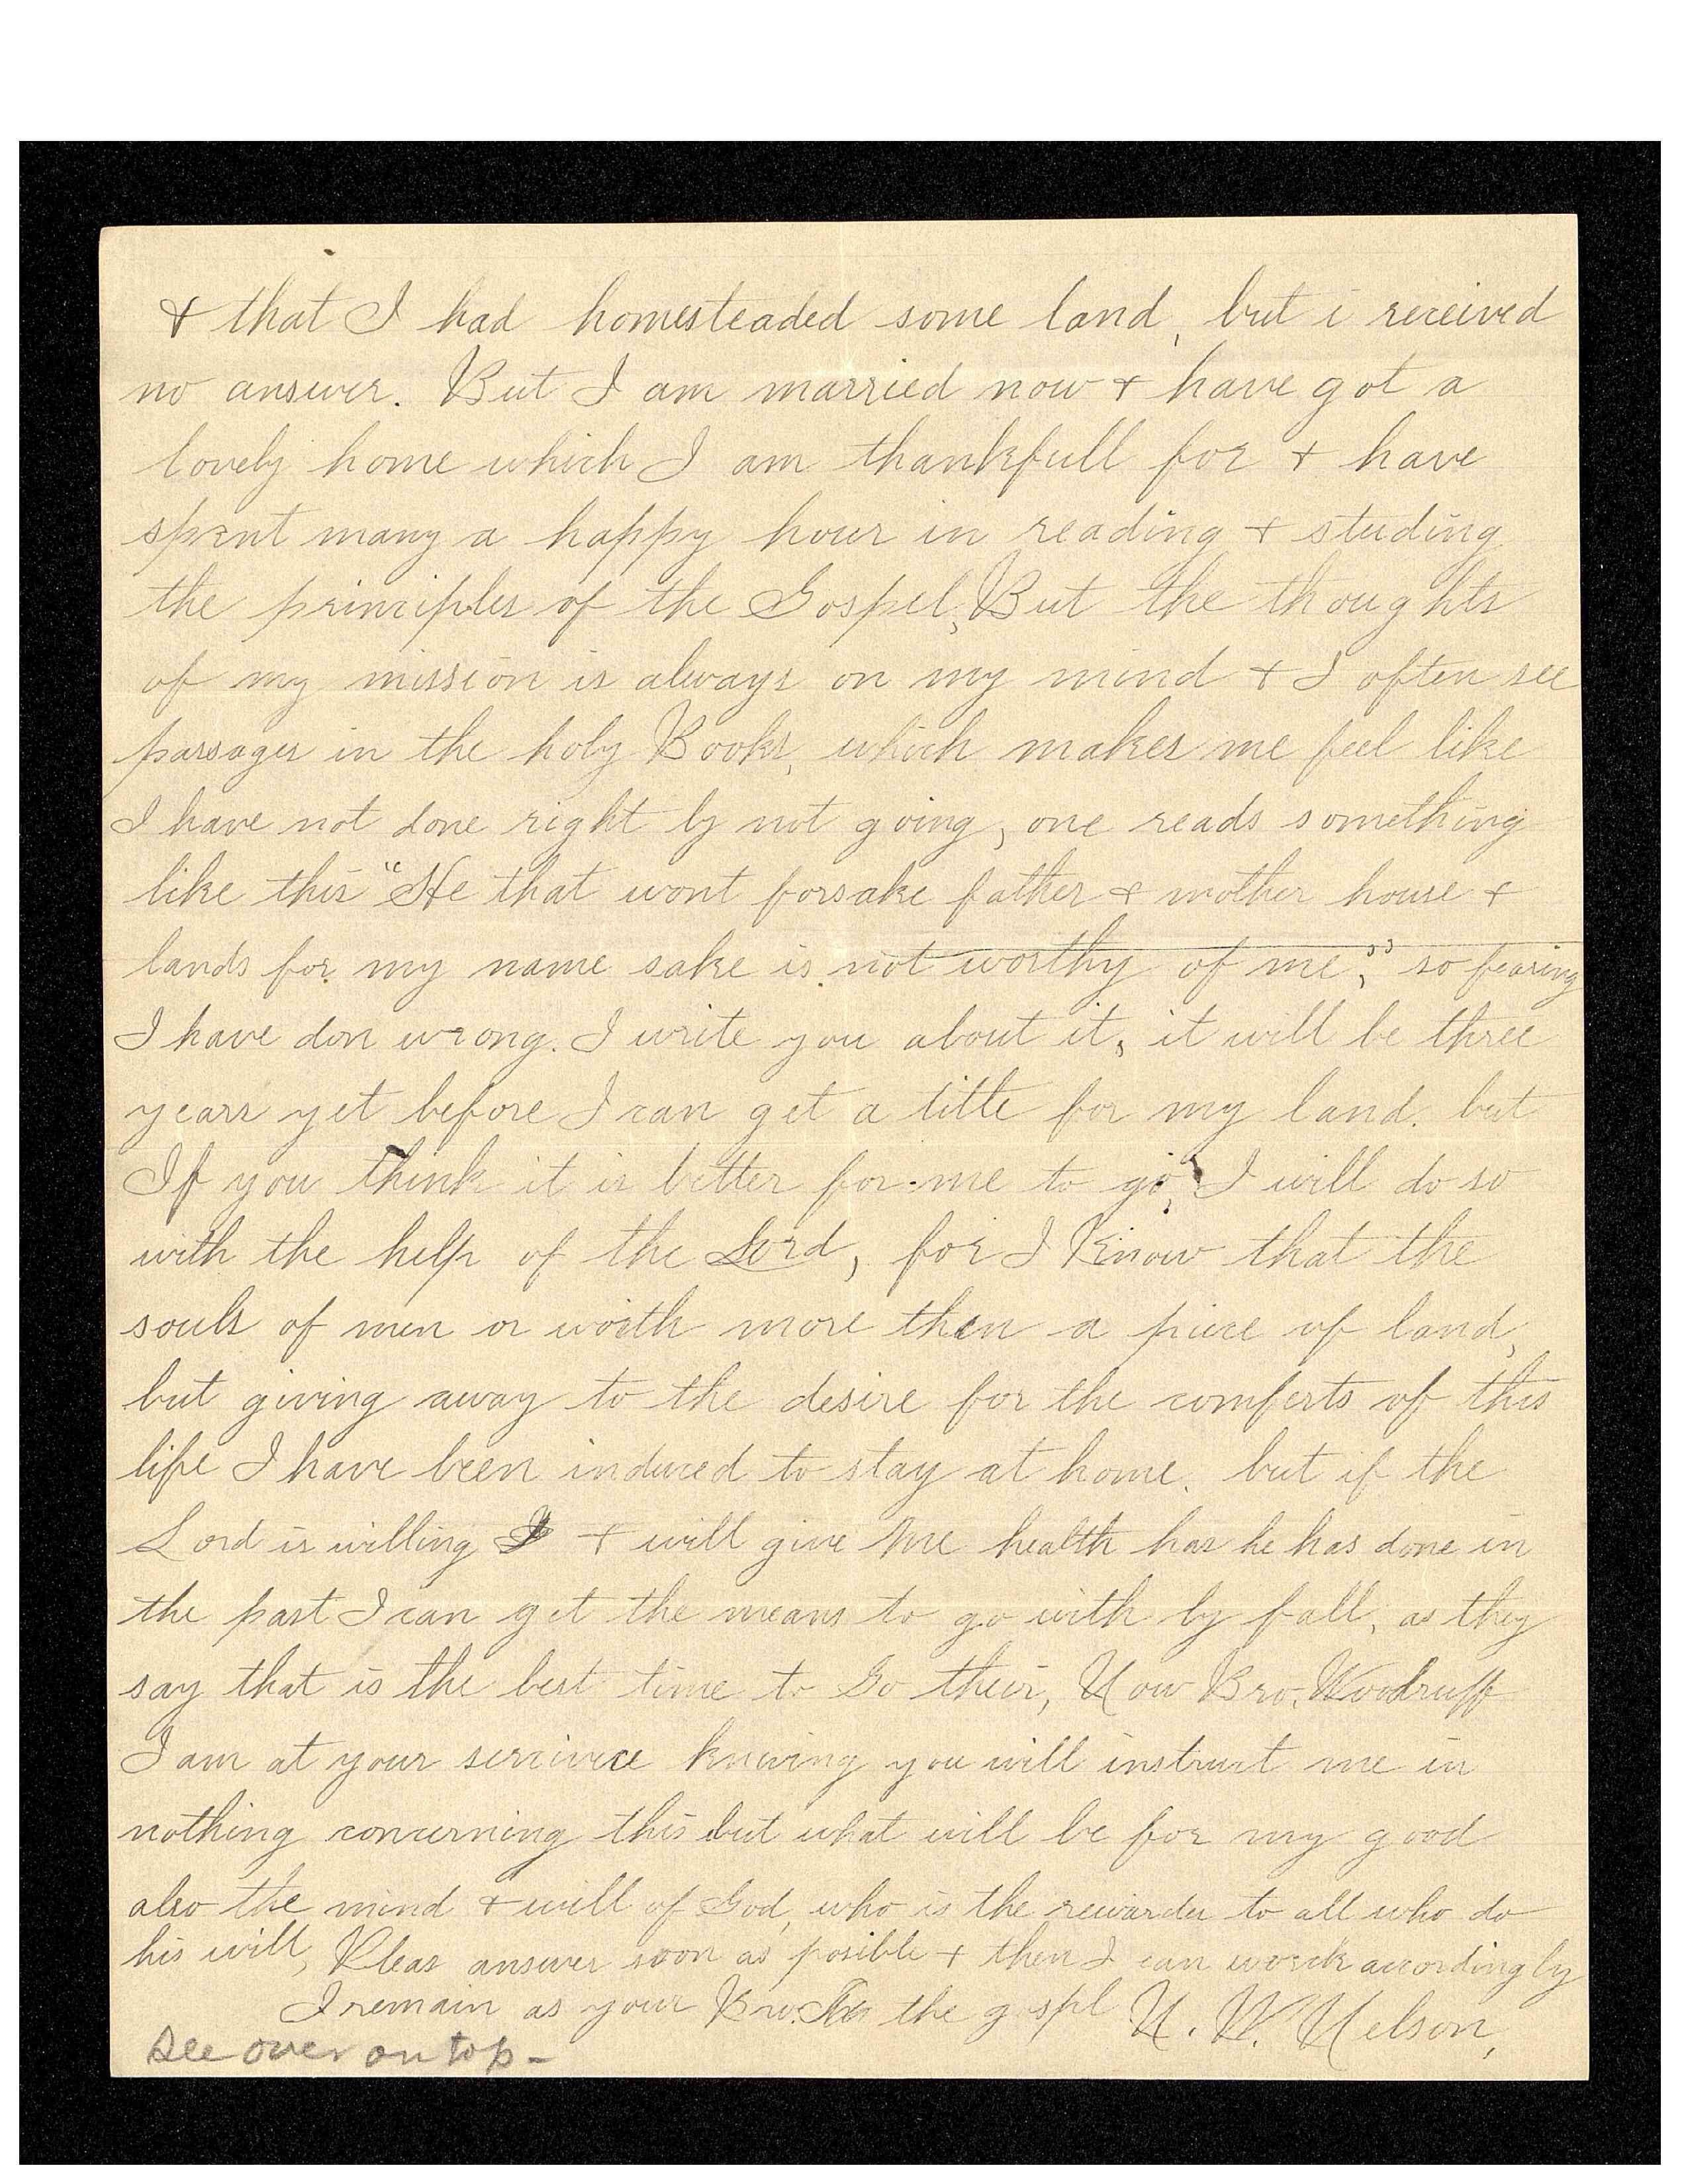 & that I had homesteaded some land, but i received
no answer. But I am married now & have got a
lovely home which I am thankfull for & have
spent many a happy hour in reading & studing
the principles of the Gospel, But the thoughts
of my mission is always on my mind & I often see
passages in the holy Books, which makes me feel like
I have not done right by not going, one reads something
like this "He that wont forsake father & mother house &
lands for my name sake is not worthy of me," so fearing
I have don wrong. I write you about it, it will be three
years yet before I can get a title for my land. but
If you think it is better for me to go, I will do so
with the help of the Lord, for I Know that the
souls of men or worth more then a piece of land,
but giving away to the desire for the comforts of this
life I have been induced to stay at home. but if the
Lord is willing & will give me health has he has done in
the past I can get the means to go with by fall, as they
say that is the best time to Go their, Now Bro. Woodruff
I am at your servivce knwing you will instruct me in
nothing concerning this but what will be for my good
also the mind & will of God, who is the rewarder to all who do
his will, Pleas answer soon as posible & then I can worck accordingly
I remain as your Bro. In the gospl N. W. Nelson,
see over on top -